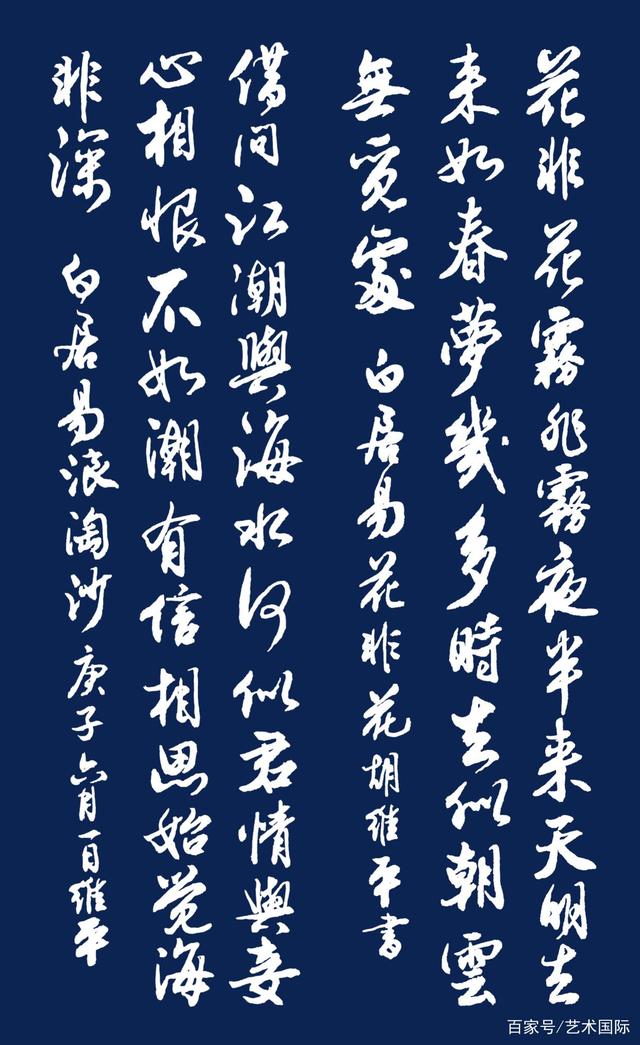 花非花霧非霧夜半来天明去
来如春夢幾多時去似朝雲
無覓處 白居易花非花胡維平書
借问江潮與海水何似君情與妾
心相恨不如潮有信相思始觉海
非深 白居易浪淘沙庚子六月一日維平
百家号/艺术国际